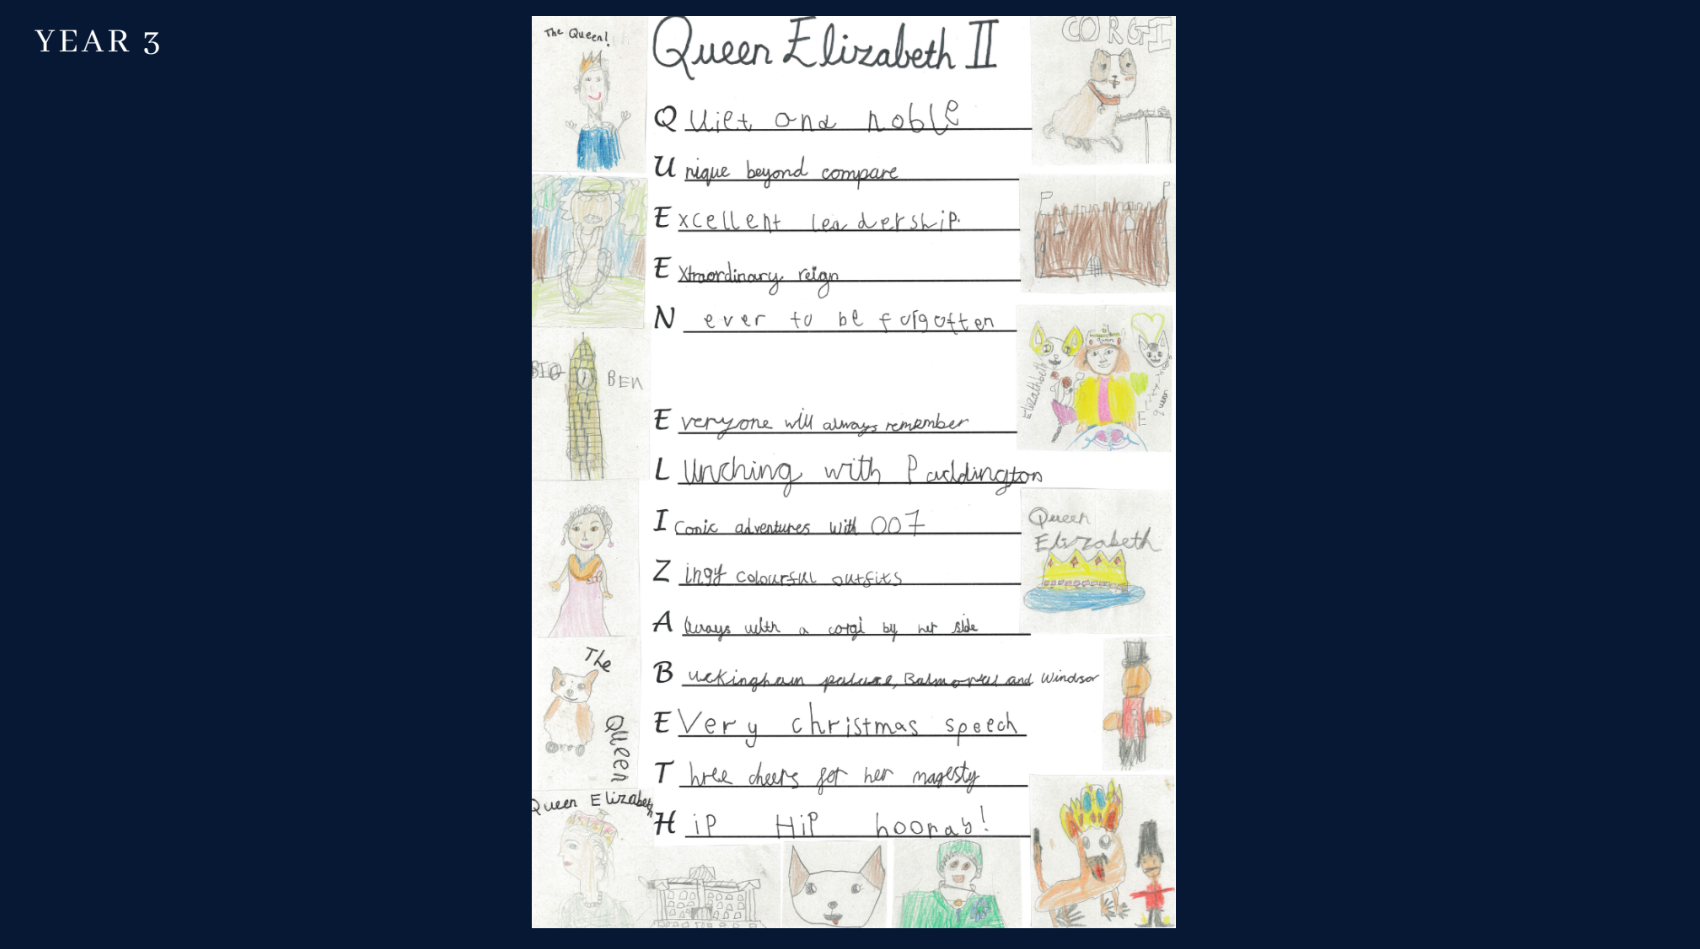 YEAR 3
The Queen!
Queen Elizabeth II
CORGI
Quiet and noble
Unique beyond compare
Excellent leadership.
Extraordinary reign
Never to be forgotten
BIG BEN
Everyone will always remember
Lunching with Paddington
Iconic adventures with 007
Queen
Elizabeth
Zingy colourful outfits
Always with a corgi by her side
The
Queen
Buckingham palace, Balmoral and Windsor
EVery christmas speech
Three cheers for her magesty
Queen Elizabeth
Hip HiP hooray!